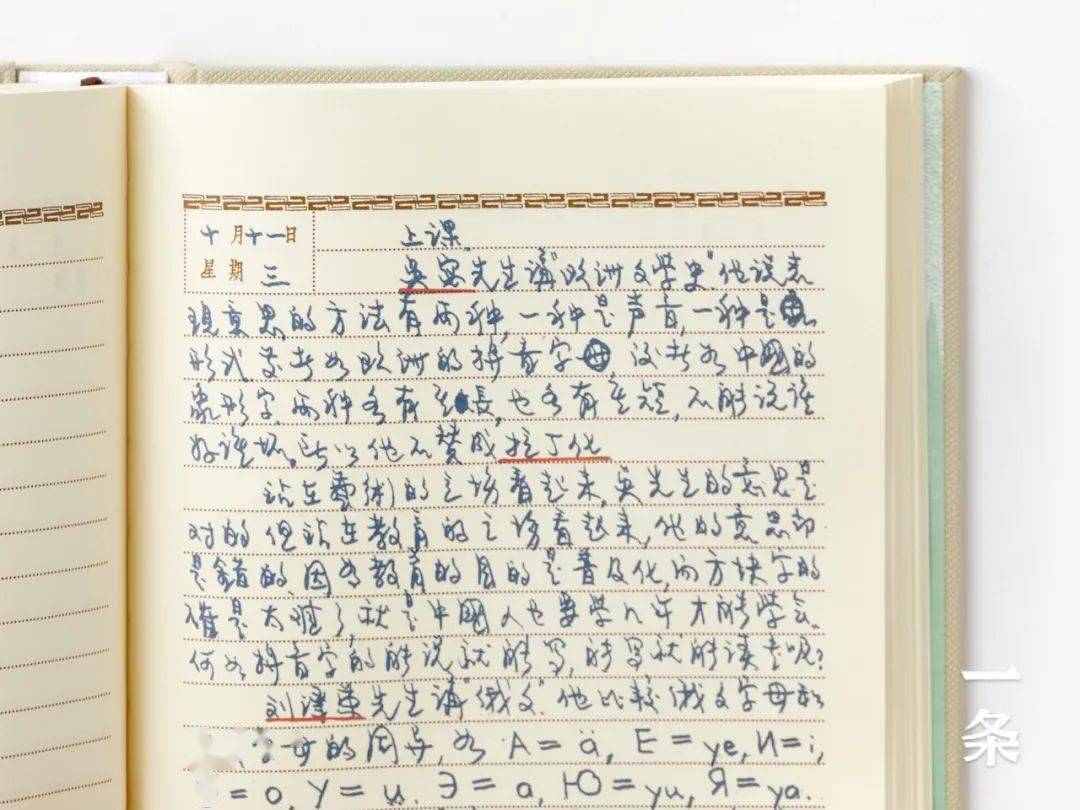 十月十一日 上课
星期三 吳宓先生講“欧洲文学史”他说表
现意思的方法有两种,一种是声音,一种是
形式 者如欧洲的拼音字母,后者如中國的
象形字.两种各有所長,也各有所短,不能说谁
好谁坏。所以他不赞成拉丁化
站在藝術的立场看起来,吳先生的意思是
对的,但站在教育的立场看起来,他的意思却
是錯的,因为教育的目的是普及化,而方块字的
確是太难了,就是中國人也要学几年才能学会.
何如拼音字的能说就能写,能写就能读书呢?
刘泽荣先生講“俄文”.他比较俄文字母和
字母的同异,如 A = ä, E = ye, И = i,
= o, У = u, Э = a, Ю = yu, Я = ya.
一条